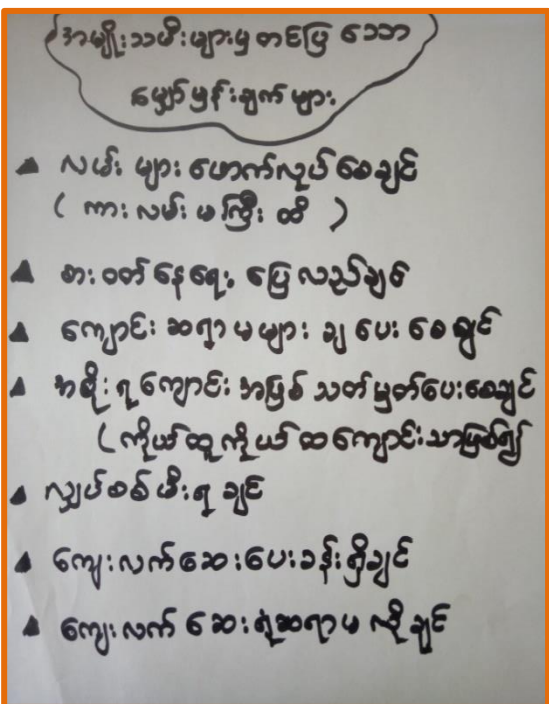 အမျိုးသမီးများမှ တင်ပြ သော
မျှော်မှန်းချက် များ
▲ လမ်း များ ဖောက်လုပ် စေချင်
( ကား လမ်း မကြီး ထိ )
▲ စား ဝတ် နေရေး ပြေ လည်ချင်
▲ ကျောင်း ဆရာ မများ ချ ပေး စေ ချင်
▲ အစိုး ရ ကျောင်း အဖြစ် သတ် မှတ်ပေးစေချင်
(ကိုယ်ထူကိုယ်ထ ကျောင်းသာဖြစ်၍
▲ လျှပ်စစ် မီး ရ ချင်
▲ ကျေးလက်ဆေးပေးခန်းရှိချင်
▲ ကျေးလက် ဆေးရုံဆရာမ လိုချင်